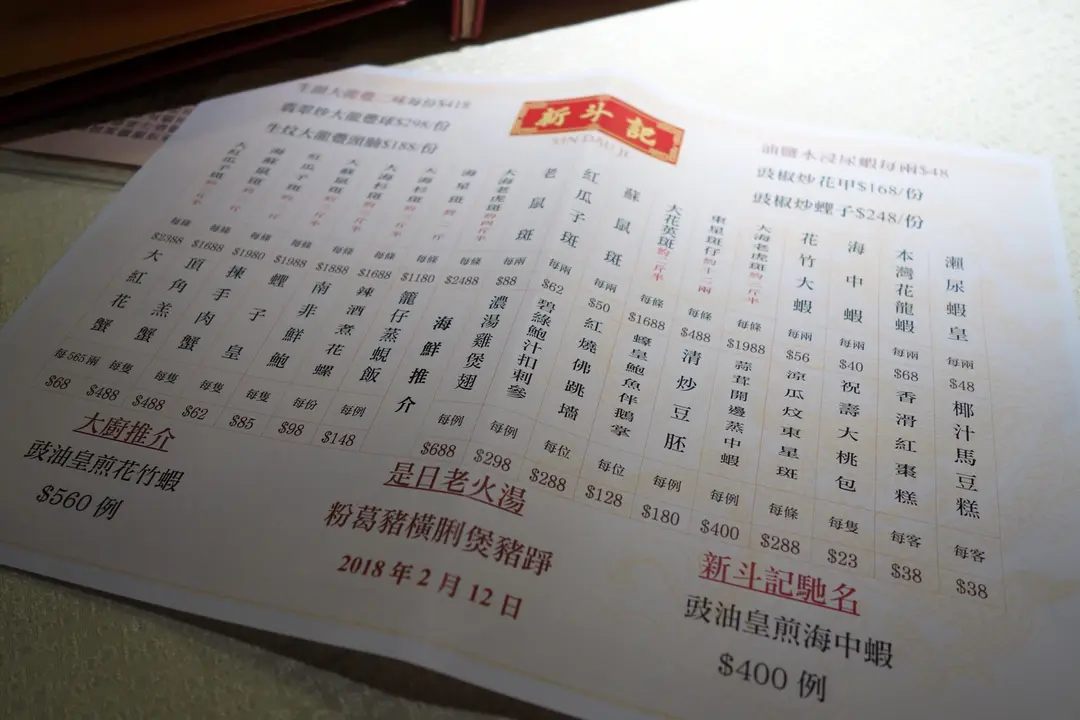 新斗記
XIN DAU JI
生劏大龍躉二味每份$418
翡翠炒大龍躉球$298/份
生炆大龍躉頭腩$188/份
油鹽水浸尿蝦每兩$48
豉椒炒花甲$168/份
豉椒炒蟶子$248/份
瀨尿蝦皇 每兩 $48
本灣花龍蝦 每兩 $68
海中蝦 每兩 $40
花竹大蝦 每兩 $56
大海老虎斑約三斤半 每條 $1988
東星斑仔約十二兩 每條 $488
大花英斑約二斤半 每條 $1688
蘇鼠斑 每兩 $50
紅瓜子斑 每兩 $62
老鼠斑 每兩 $88
大海老虎斑約四斤半 每條 $2488
海星斑約一斤 每條 $1180
大海杉斑 每條 $1688
大海杉斑 每條 $1888
大蘇鼠斑 每條 $1988
紅瓜子斑 每條 $1980
海蘇鼠斑 每條 $1688
大紅瓜子斑 每條 $2388
椰汁馬豆糕 每客 $38
香滑紅棗糕 每客 $38
祝壽大桃包 每隻 $23
涼瓜炆東星斑 每條 $288
蒜茸開邊蒸中蝦 每例 $400
清炒豆胚 每例 $180
蠔皇鮑魚伴鵝掌 每位 $128
紅燒佛跳墻 每位 $288
碧綠鮑汁扣刺參 每例 $298
濃湯雞煲翅 每例 $688
海鮮推介
籠仔蒸蜆飯 每例 $148
辣酒煮花螺 每份 $98
南非鮮鮑 每隻 $85
蟶子皇 每隻 $62
揀手肉蟹 每隻 $488
頂角羔蟹 每隻 $488
大紅花蟹 每565兩 $68
大廚推介
豉油皇煎花竹蝦
$560 例
是日老火湯
粉葛豬橫脷煲豬踭
2018 年 2 月 12 日
新斗記馳名
豉油皇煎海中蝦
$400 例